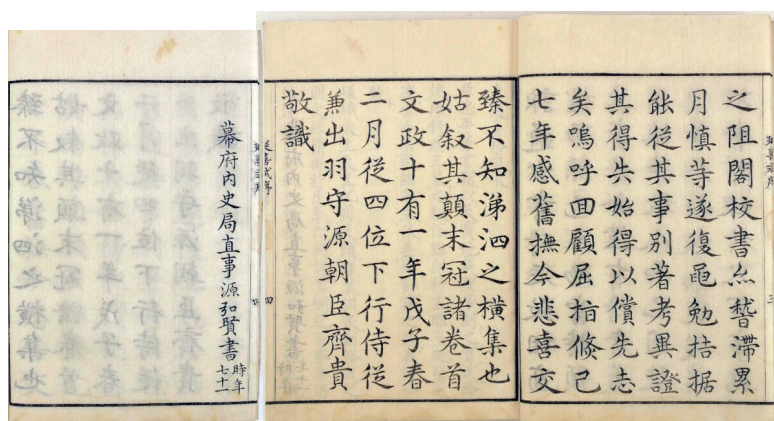 之阻閣校書亦暫滯累
月慎等遂復黽勉拮据
能從其事別著考異證
其得失始得以償先志
矣嗚呼回顧屈指倏已
七年感舊撫今悲喜交
臻不知涕泗之橫集也
姑叙其顛末冠諸卷首
文政十有一年戊子春
二月從四位下行侍從
兼出羽守源朝臣齊貴
敬識
幕府內史局直事源弘賢書 時年
七十一
延喜式序
三
四